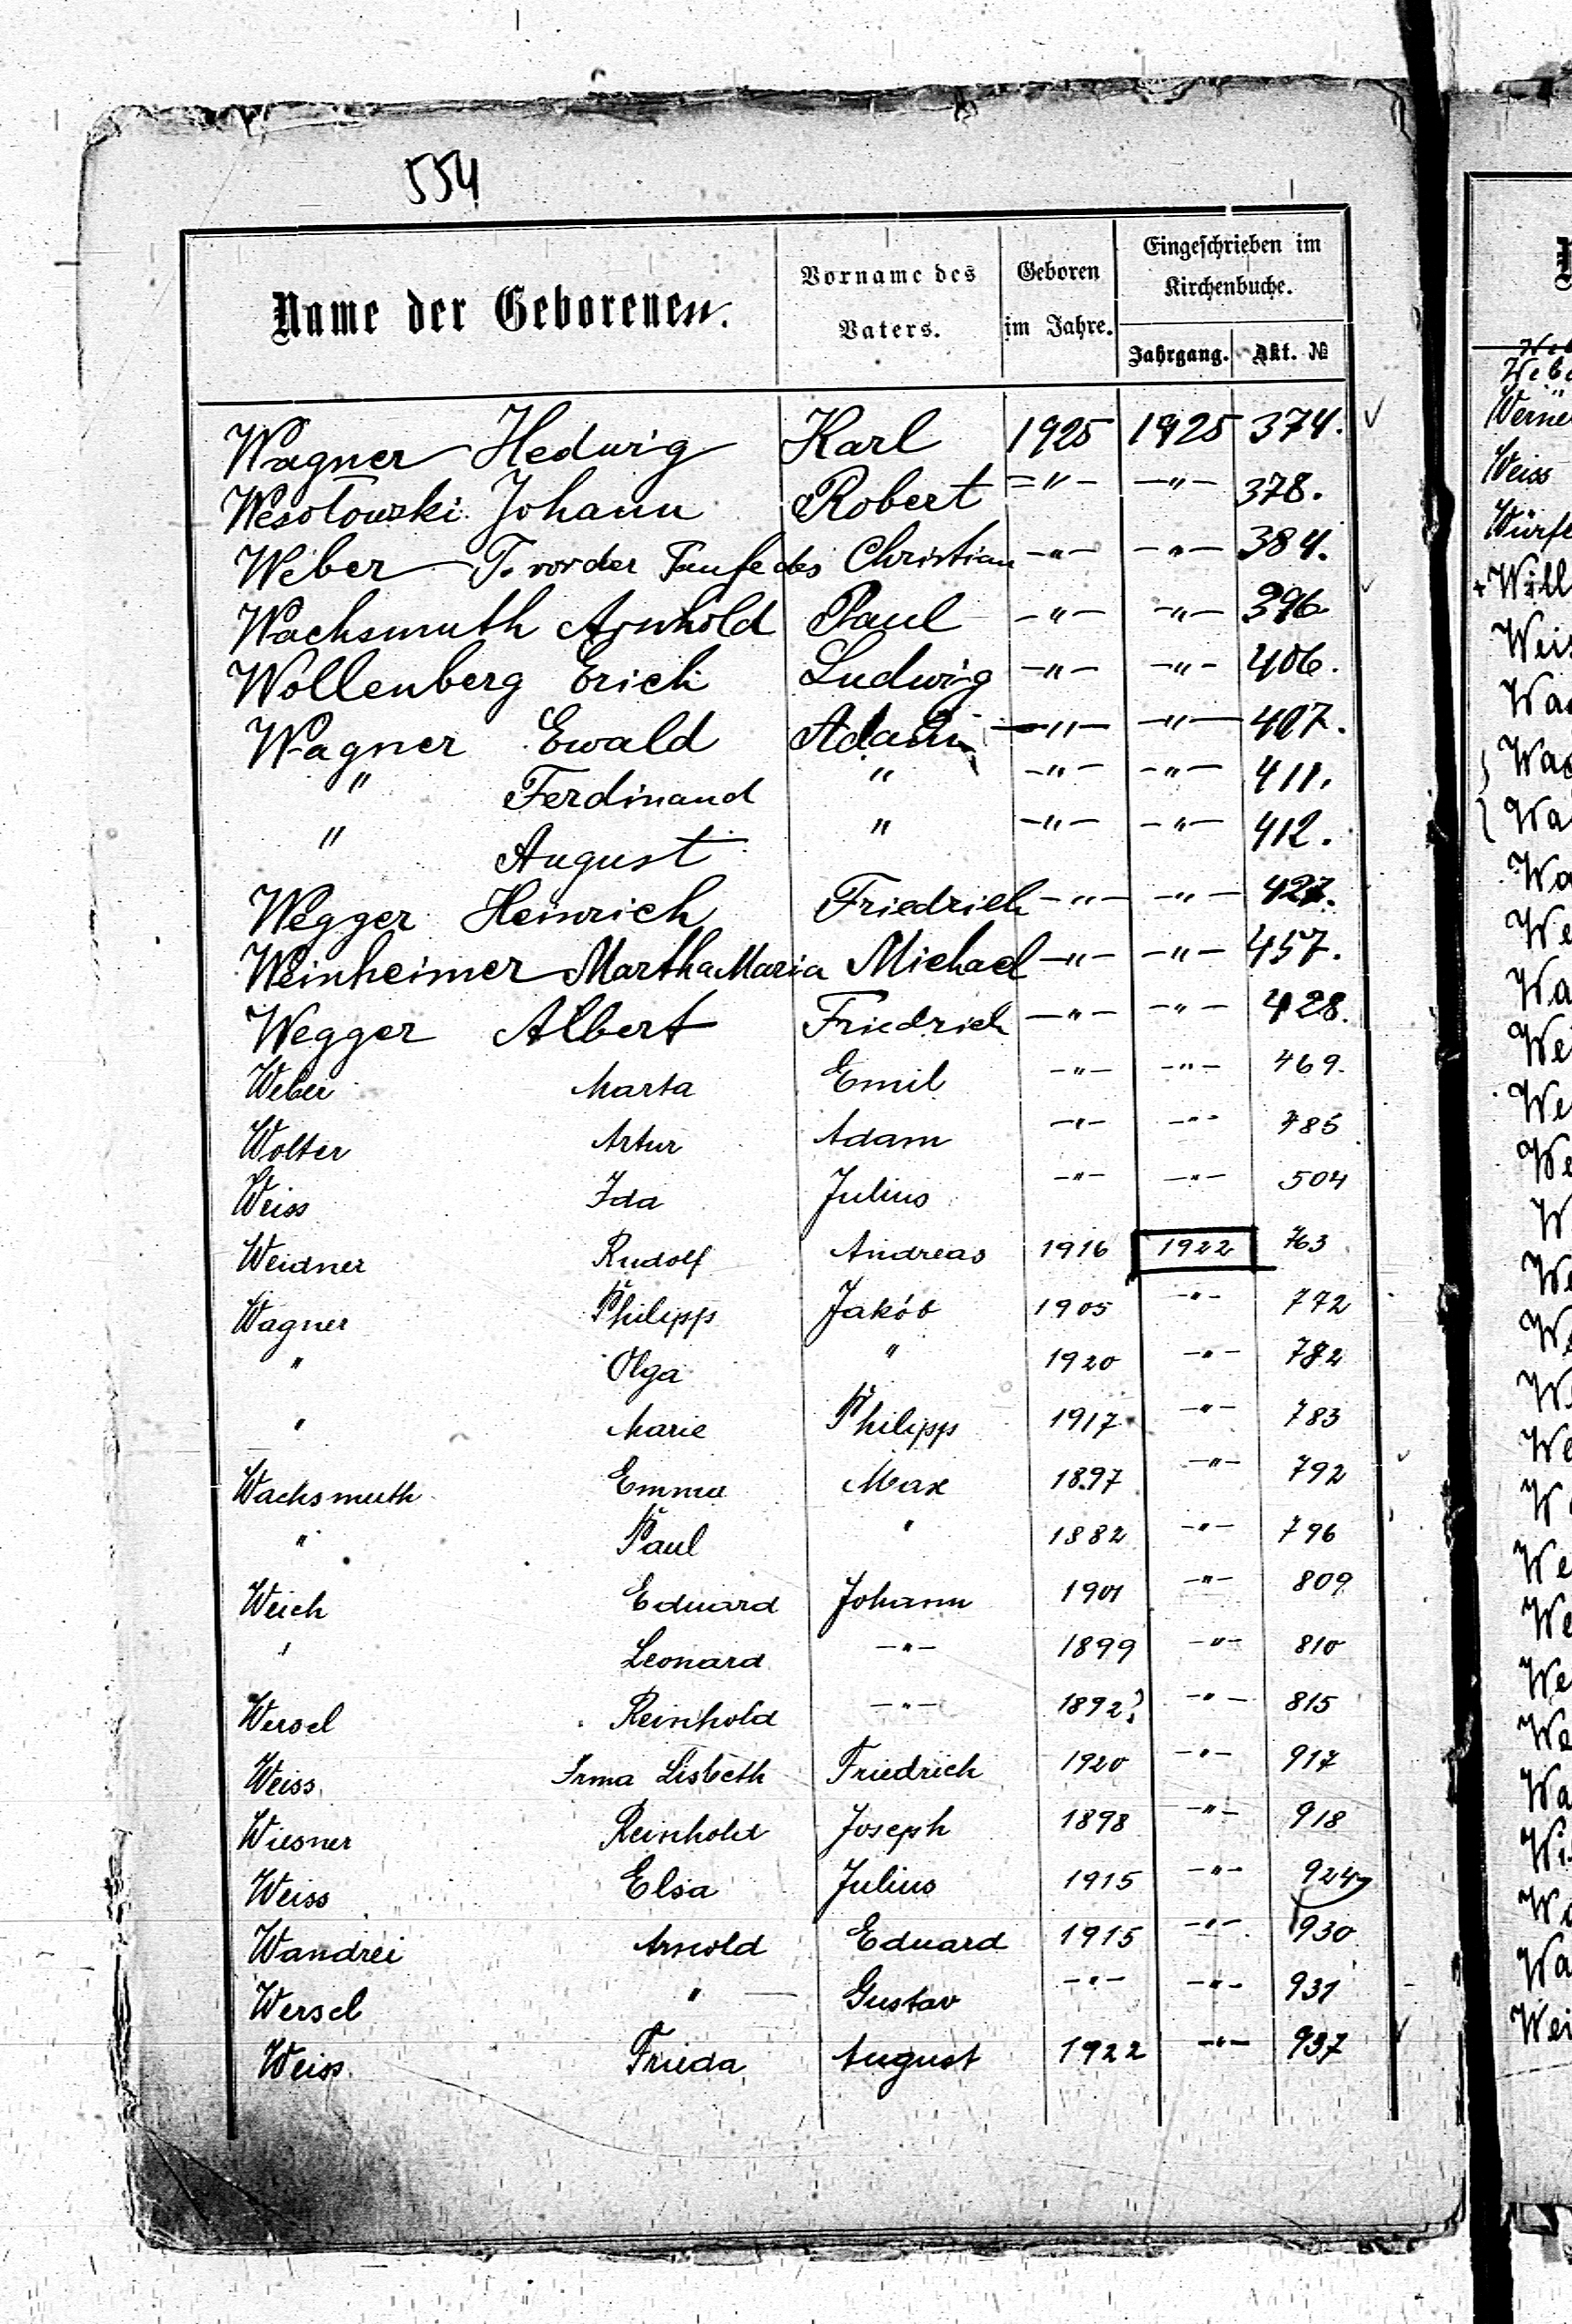 554
Name der Geborenen. Vorname des Vaters. Geboren im Jahre. Eingeschrieben im Kirchenbuche. Jahrgang. Akt. №
Wagner Hedwig Karl 1925 1925 374.
Wesołowski Johann Robert -"- -"- 378.
Weber T. vor der Taufe des Christian -"- -"- 384.
Wachsmuth Arnhold Paul -"- -"- 396
Wollenberg Erich Ludwig -"- -"- 406.
Wagner Ewald Adam -"- -"- 407.
" Ferdinand " -"- -"- 411.
" August " -"- -"- 412.
Wegger Heinrich Friedrich -"- -"- 427.
Weinheimer Martha Maria Michael -"- -"- 457.
Wegger Albert Friedrich -"- -"- 428.
Weber Marta Emil -"- -"- 469.
Wolter Artur Adam -"- -"- 485
Weiss Ida Julius -"- -"- 504
Weidner Rudolf Andreas 1916 1922 763
Wagner Philipp Jakób 1905 -"- 772
" Olga " 1920 -"- 782
" Marie Philipp 1917 -"- 783
Wachsmuth Emma Max 1897 -"- 792
" Paul " 1882 -"- 796
Weich Eduard Johann 1901 -"- 809
" Leonard -"- 1899 -"- 810
Wersel Reinhold -"- 1892? -"- 815
Weiss Irma Lisbeth Friedrich 1920 -"- 917
Wiesner Reinhold Joseph 1898 -"- 918
Weiss Elsa Julius 1915 -"- 924
Wandrei Arnold Eduard 1915 -"- 930
Wersel " Gustav -"- -"- 931
Weiss Frieda August 1922 -"- 937
Werne
Weiss
Würfe